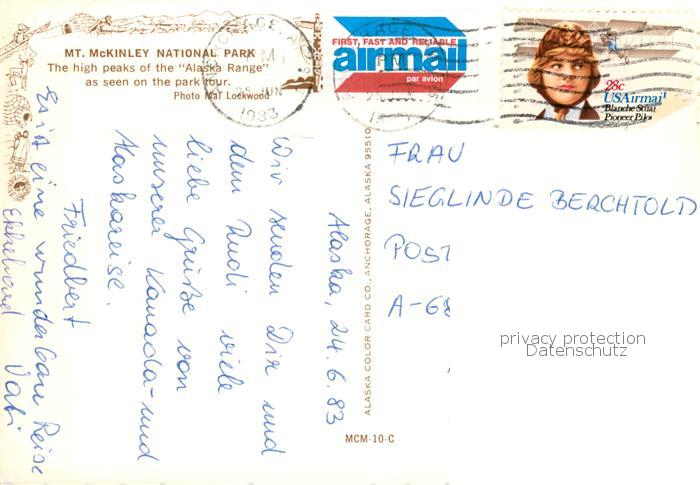 MT. McKINLEY NATIONAL PARK
The high peaks of the "Alaska Range"
as seen on the park tour.
Photo Mal Lockwood
JUN
1983
FIRST, FAST AND RELIABLE
airmail
par avion
28c
USAirmail
Blanche Stuart
Pioneer Pilot
Alaska, 24.6.83
Wir senden Dir und
dem Rudi viele
liebe Grüße von
unserer Kanada- und
Alaskareise.
Friedbert
Es ist eine wunderbare Reise
Ekkehard Vati
ALASKA COLOR CARD CO., ANCHORAGE, ALASKA 99510
MCM-10-C
FRAU
SIEGLINDE BERCHTOLD
POST
A-68
privacy protection
Datenschutz